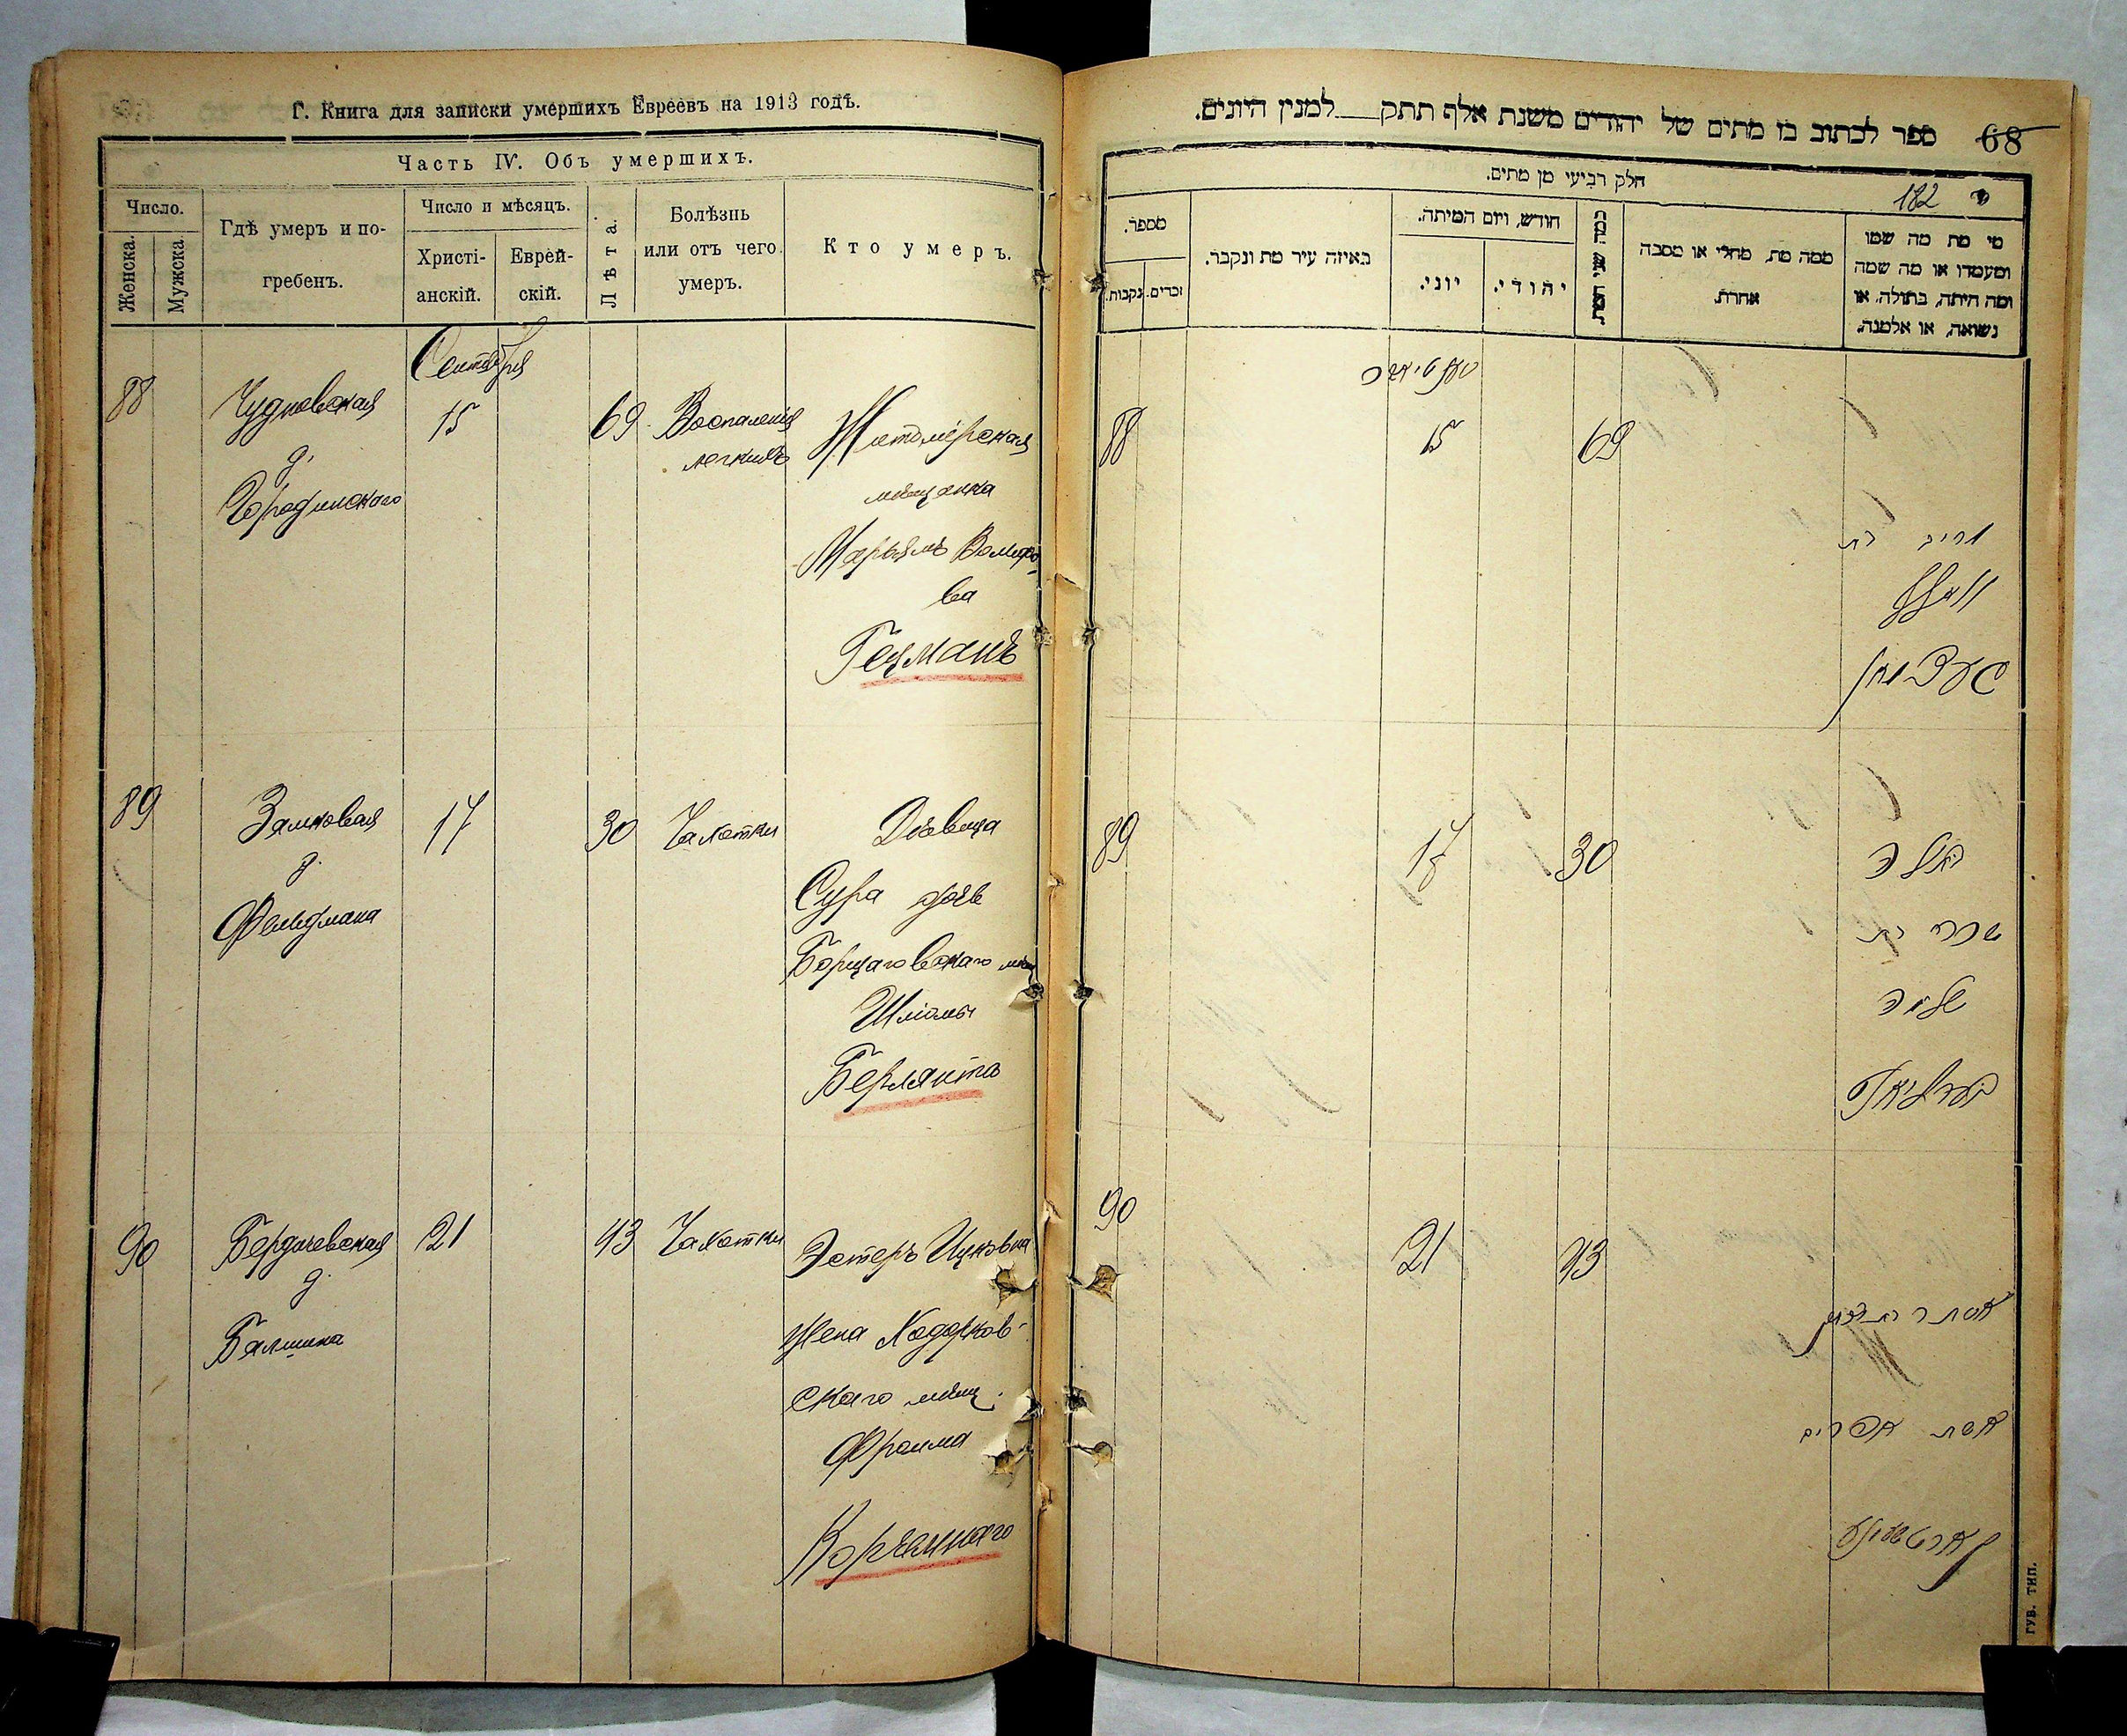 Г. Книга для записки умершихъ Евреевъ на 1913 годъ.
Часть IV. Объ умершихъ.
Число.
Женска.
Мужска.
Гдѣ умеръ и по-
гребенъ.
Число и мѣсяцъ.
Христі-
анскій.
Еврей-
скій.
Лѣта.
Болѣзнь
или отъ чего
умеръ.
Кто умеръ.
Сентября
88
Чудновская
д.
Городинскаго
15
69
Воспаленія
легкихъ
Житомірская
мѣщанка
Марьямъ
ва
Гецманъ
89
Замковая
д.
Фельдмана
17
30
Чахотки
Дѣвица
Сура дочь
Борщаговскаго мѣщ
Шліомы
Берлянта
90
Бердичевская
д.
Балшина
21
43
Чахотки
Эстеръ Ицковна
жена Ходорков-
скаго мѣщ.
Фроима
Корчемнаго
ספר לכתוב בו מתים של יהודים משנת אלף תתק למנין היונים.
68
חלק רביעי מן מתים.
182
מספר.
נקבות.
זכרים.
באיזה עיר מת ונקבר.
חודש, ויום המיתה.
יוני.
יהודי.
כמה שני המת
ממה מת, מחלי או מסבה
אחרת.
מי מת מה שמו
ומעמדו או מה שמה
ומה היתה, בתולה, או
נשואה, או אלמנה.
88
15
69
מרים בת
וואלף
געצמאן
89
17
30
כלה
שרה בת
שלמה
בערליאנד
90
21
43
אסתר בת יצחק
אשת אפרים
גוב. тип.